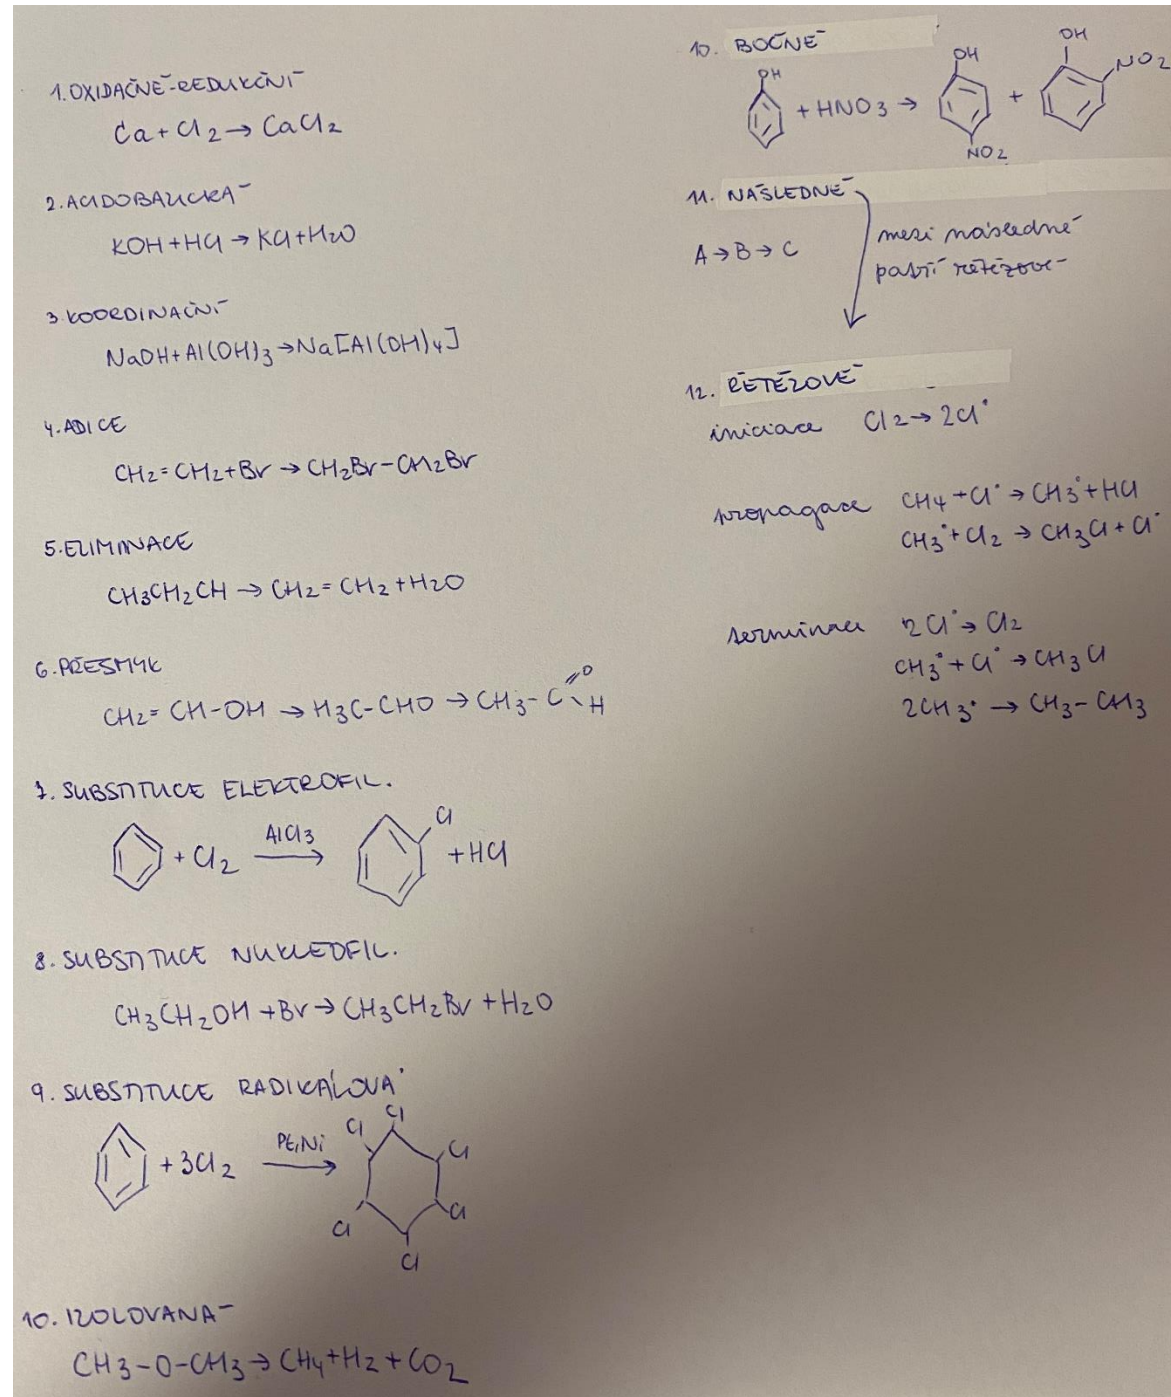 1. OXIDAČNĚ-REDUKČNÍ
Ca + Cl2 → CaCl2
2. ACIDOBAZICKÁ
KOH + HCl → KCl + H2O
3. KOORDINAČNÍ
NaOH + Al(OH)3 → Na[Al(OH)4]
4. ADICE
CH2=CH2 + Br → CH2Br-CH2Br
5. ELIMINACE
CH3CH2CH → CH2=CH2 + H2O
6. PŘESMYK
CH2=CH-OH → H3C-CHO → CH3-C O H
7. SUBSTITUCE ELEKTROFIL.
+ Cl2 AlCl3 → Cl + HCl
8. SUBSTITUCE NUKLEOFIL.
CH3CH2OH + Br → CH3CH2Br + H2O
9. SUBSTITUCE RADIKÁLOVÁ
+ 3Cl2 Pt,Ni → Cl Cl Cl Cl Cl Cl
10. IZOLOVANÁ
CH3-O-CH3 → CH4 + H2 + CO2
10. BOČNÉ
OH + HNO3 → OH NO2 + OH NO2
11. NÁSLEDNÉ
A → B → C
mezi následné
patří řetězové
12. ŘETĚZOVÉ
iniciace Cl2 → 2Cl•
propagace CH4 + Cl• → CH3• + HCl
CH3• + Cl2 → CH3Cl + Cl•
terminace 2Cl• → Cl2
CH3• + Cl• → CH3Cl
2CH3• → CH3-CH3